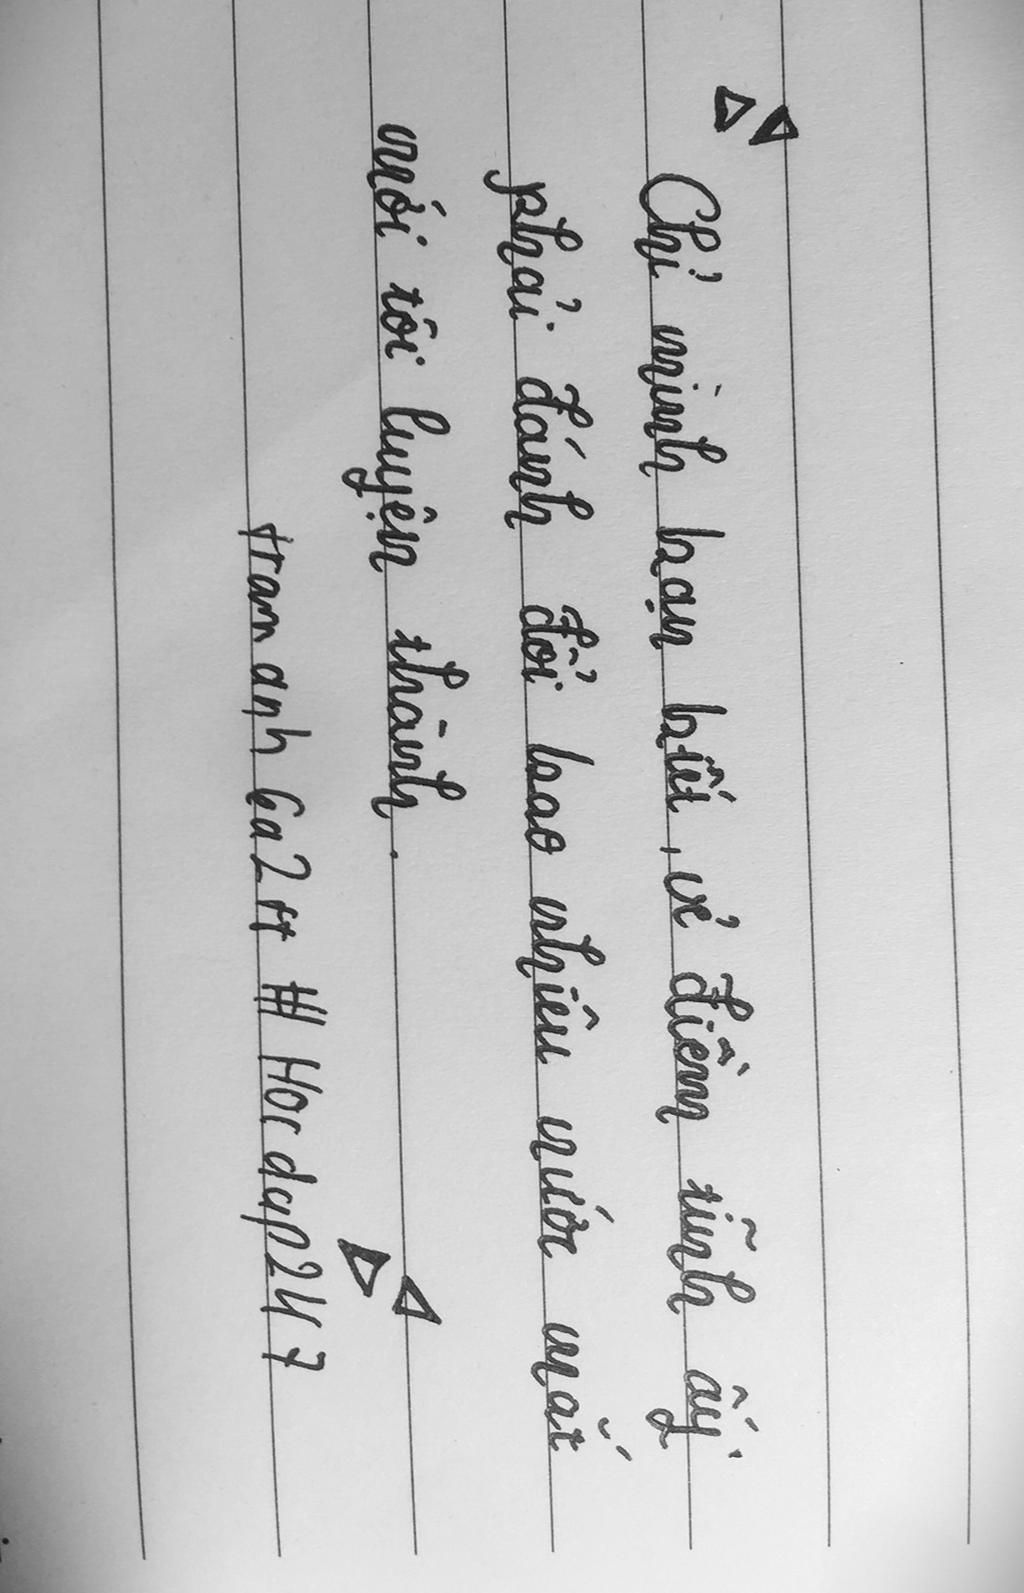 Chỉ mình bạn biết, vẻ điềm tĩnh ấy
phải đánh đổi bao nhiêu nước mắt
mới tôi luyện thành.
tram anh 6a2 tt # Hoc dap247